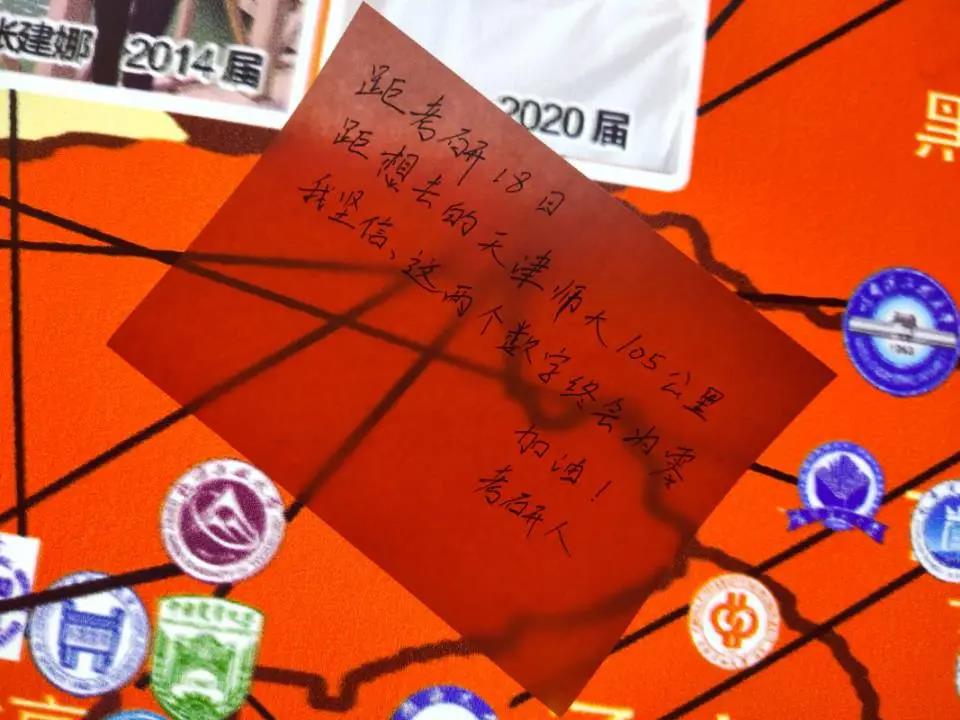 张建娜 2014届
2020届
黑
距考研18日
距想去的天津师大105公里
我坚信、这两个数字终会为零
加油!
考研人